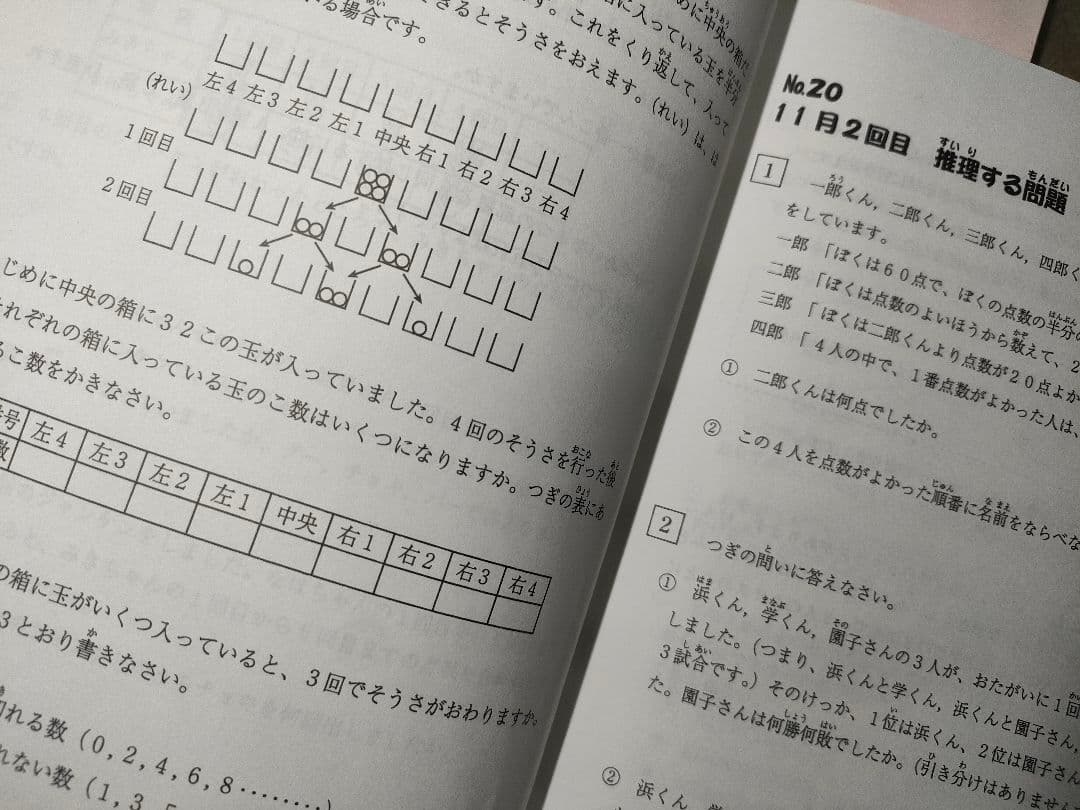 めに中央の箱
に入っている玉を半分
きるとそうさをおえます。これをくり返して、入って
れる場合です。
(れい)は、は
左4 左3 左2 左1 中央 右1 右2 右3 右4
(れい)
1回目
2回目
じめに中央の箱に32この玉が入っていました。4回のそうさを行った後
それぞれの箱に入っている玉のこ数はいくつになりますか。つぎの表にあ
るこ数をかきなさい。
号 左4 左3 左2 左1 中央 右1 右2 右3 右4
数
の箱に玉がいくつ入っていると、3回でそうさがおわりますか。
3とおり書きなさい。
れる数(0,2,4,6,8………)
れない数(1,3,5
No.20
11月2回目 推理する問題
1
一郎くん,二郎くん,三郎くん,四郎く
をしています。
一郎「ぼくは60点で、ぼくの点数の半分の
二郎「ぼくは点数のよいほうから数えて、2
三郎「ぼくは二郎くんより点数が20点よか
四郎「4人の中で、1番点数がよかった人は、
① 二郎くんは何点でしたか。
② この4人を点数がよかった順番に名前をならべな
2
つぎの問いに答えなさい。
① 浜くん,学くん,園子さんの3人が、おたがいに1回
しました。(つまり、浜くんと学くん,浜くんと園子さん,
3試合です。)そのけっか、1位は浜くん、2位は園子さ
た。園子さんは何勝何敗でしたか。(引き分けはありません
② 浜くん,学